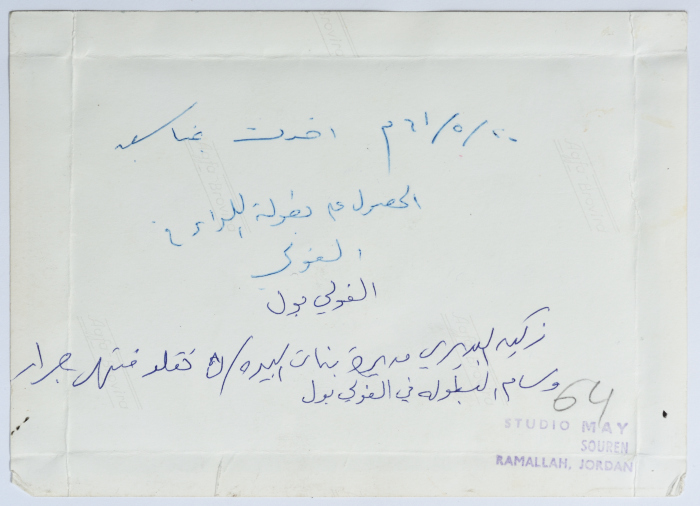 ٢٠/٥/٦١م اخذت بمناسبة
الحصول على بطولة اللواء في
الفولي
الفولي بول
زكيه البديري مديرة بنات البيره/ تقلد منتهى جرار
وسام البطوله في الفولي بول
64
STUDIO MAY
SOUREN
RAMALLAH, JORDAN